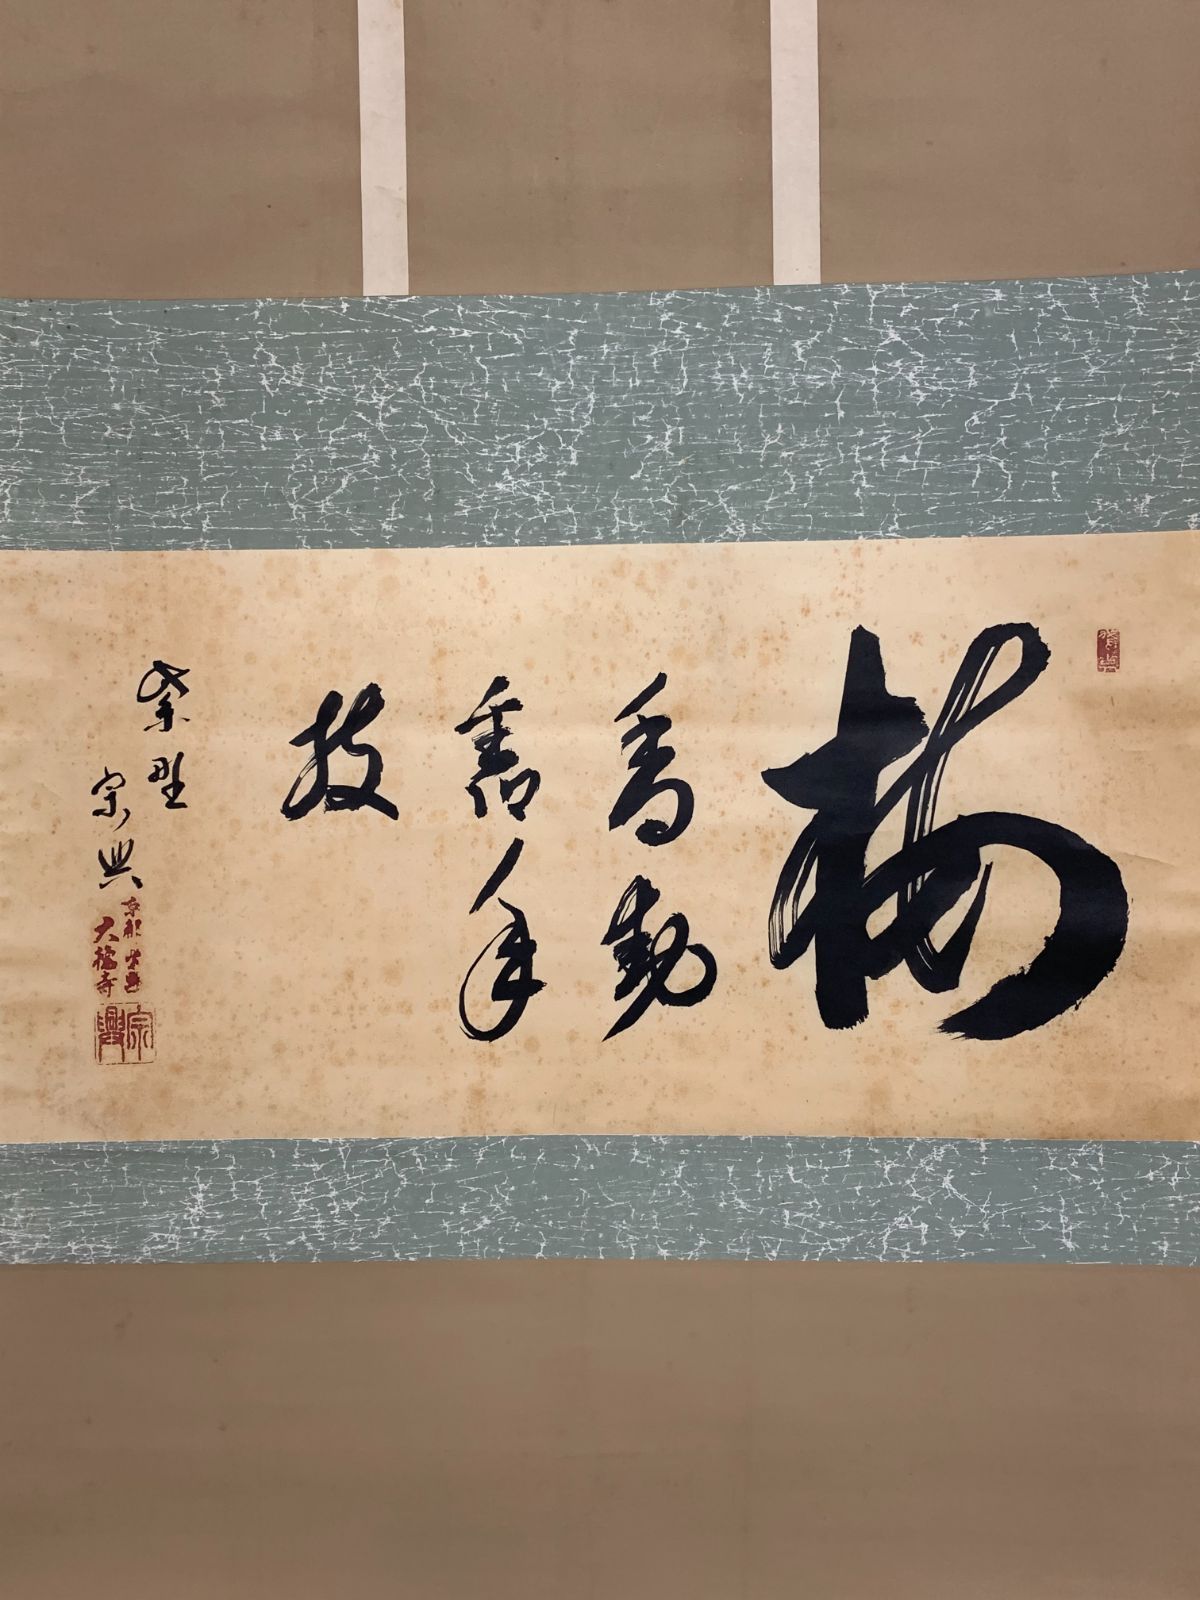 梅
香動
舊年
枝
紫野
宗興
京都 紫野
大徳寺
宗興